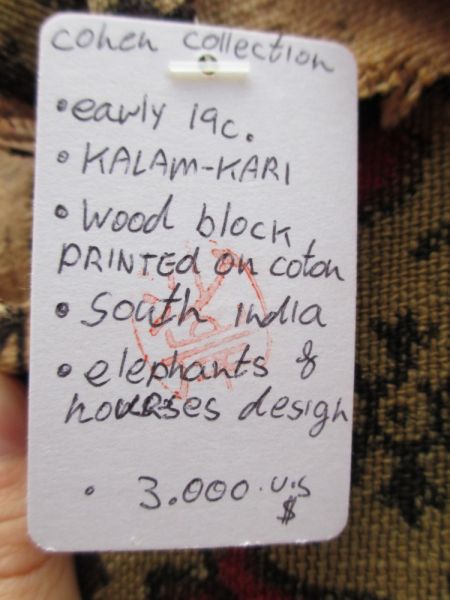 cohen collection
• early 19c.
• KALAM-KARI
• wood block
PRINTED on coton
• South india
• elephants &
horses design
• 3.000.U.S
$